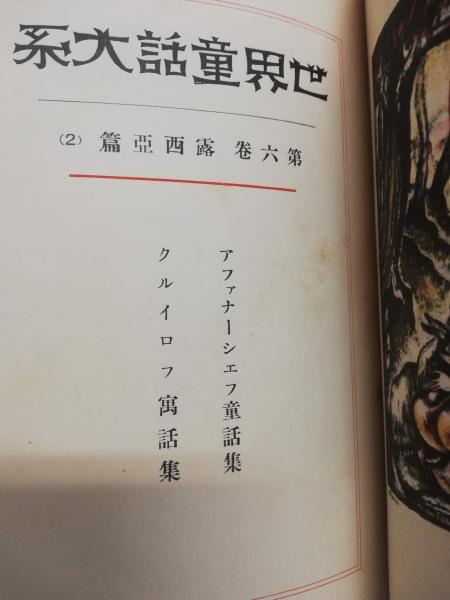 世界童話大系
第六卷 露西亞篇 (2)
アファナーシエフ童話集
クルイロフ寓話集